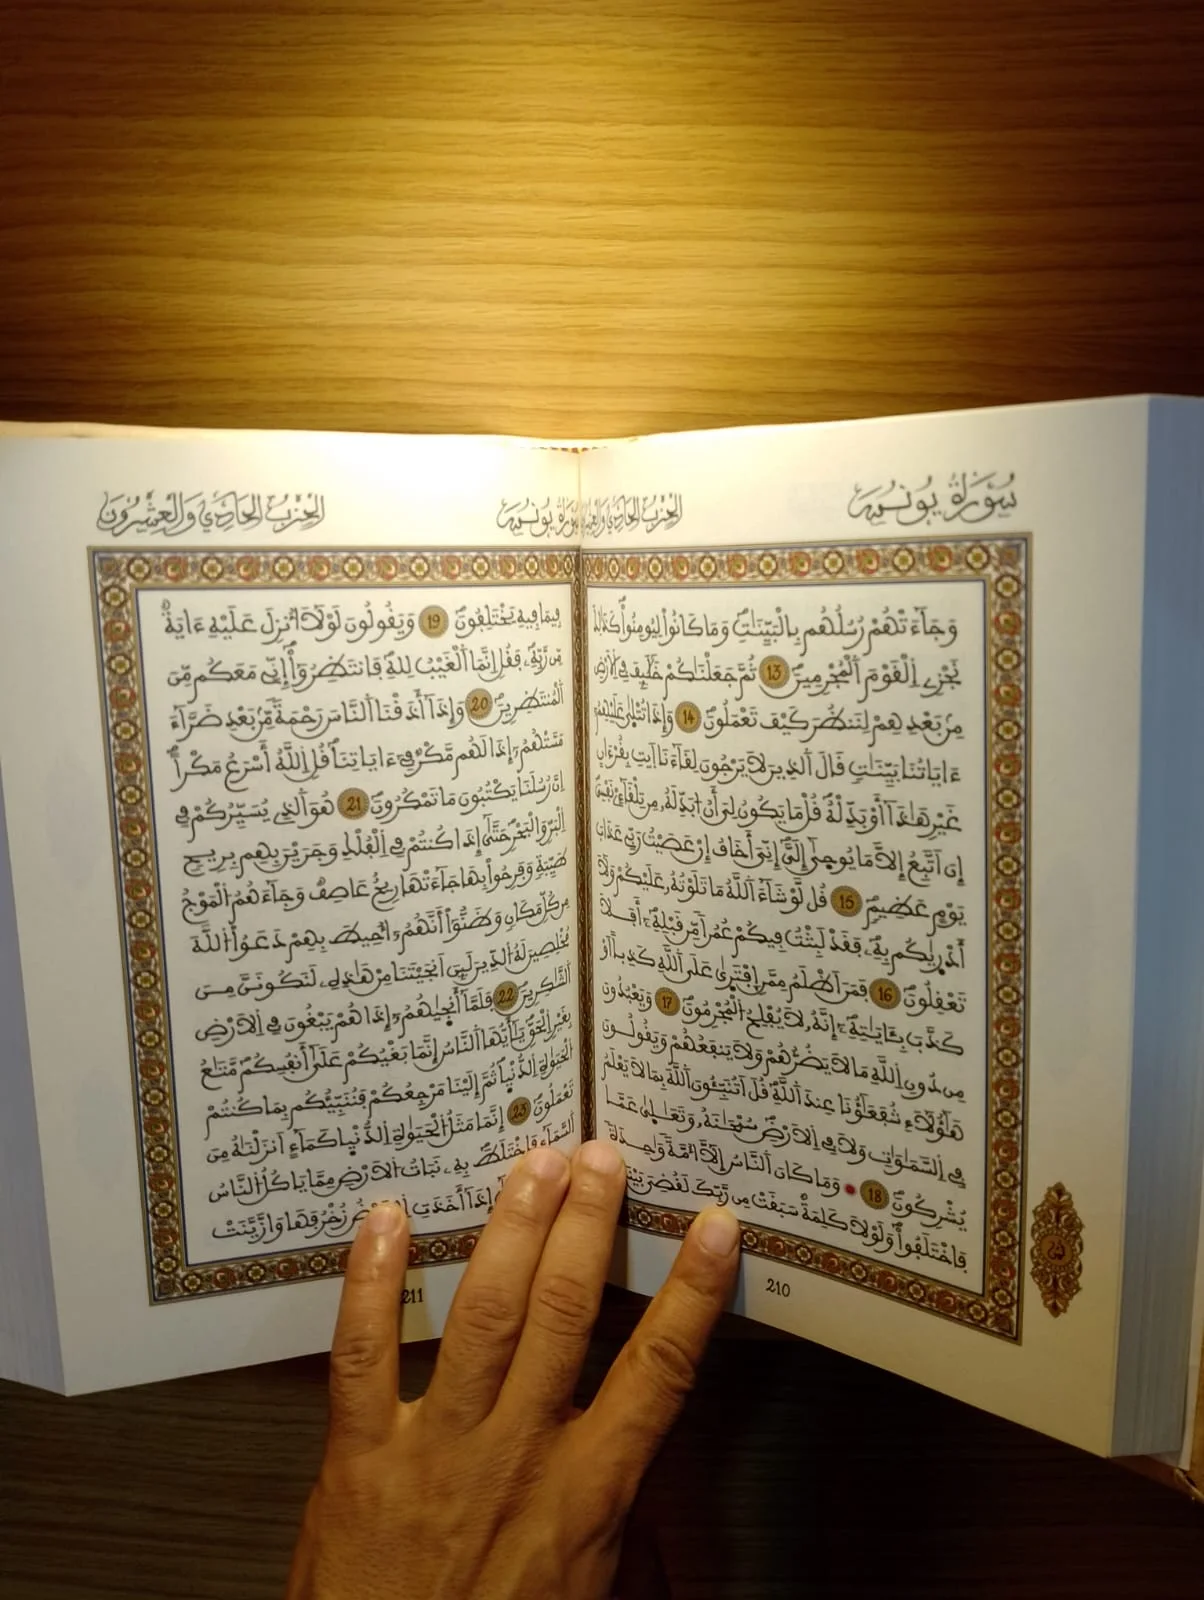 سُورَةُ يُونُسَ
الحِزْبُ الحَادِي وَالعِشْرُونَ
وَجَآءَتْهُمْ رُسُلُهُم بِالْبَيِّنَٰتِ وَمَا كَانُواْ لِيُومِنُواْ كَذَٰلِكَ
نَجْزِے اِ۬لْقَوْمَ اَ۬لْمُجْرِمِينَ 13 ثُمَّ جَعَلْنَٰكُمْ خَلَٰٓئِفَ فِے اِ۬لَارْضِ
مِنۢ بَعْدِهِمْ لِنَنظُرَ كَيْفَ تَعْمَلُونَ 14 وَإِذَا تُتْل۪يٰ عَلَيْهِمُۥٓ
ءَايَاتُنَا بَيِّنَٰتٖ قَالَ اَ۬لذِينَ لَا يَرْجُونَ لِقَآءَنَا اَ۪يتِ بِقُرْءَانٍ
غَيْرِ هَٰذَآ أَوْ بَدِّلْهُۖ قُلْ مَا يَكُونُ لِيَ أَنُ ا۟بَدِّلَهُۥ مِن تِلْقَآءِۓ نَفْسِيَ
إِنَ اَتَّبِعُ إِلَّا مَا يُوح۪يٰٓ إِلَيَّۖ إِنِّيَ أَخَافُ إِنْ عَصَيْتُ رَبِّے عَذَابَ
يَوْمٍ عَظِيمٖۖ 15 قُل لَّوْ شَآءَ اَ۬للَّهُ مَا تَلَوْتُهُۥ عَلَيْكُمْ وَلَآ
أَدْر۪يٰكُم بِهِۦۖ فَقَدْ لَبِثْتُ فِيكُمْ عُمُراٗ مِّن قَبْلِهِۦٓۖ أَفَلَا
تَعْقِلُونَۖ 16 فَمَنَ اَظْلَمُ مِمَّنِ اِ۪فْتَر۪يٰ عَلَي اَ۬للَّهِ كَذِباً اَوْ
كَذَّبَ بِـَٔايَٰتِهِۦٓۖ إِنَّهُۥ لَا يُفْلِحُ اُ۬لْمُجْرِمُونَۖ 17 وَيَعْبُدُونَ
مِن دُونِ اِ۬للَّهِ مَا لَا يَضُرُّهُمْ وَلَا يَنفَعُهُمْ وَيَقُولُونَ
هَٰٓؤُلَآءِ شُفَعَٰٓؤُنَا عِندَ اَ۬للَّهِۖ قُلَ اَتُنَبِّـُٔونَ اَ۬للَّهَ بِمَا لَا يَعْلَمُ
فِے اِ۬لسَّمَٰوَٰتِ وَلَا فِے اِ۬لَارْضِۖ سُبْحَٰنَهُۥ وَتَعَٰل۪يٰ عَمَّا
يُشْرِكُونَۖ 18 وَمَا كَانَ اَ۬لنَّاسُ إِلَّآ أُمَّةٗ وَٰحِدَةٗ
فَاخْتَلَفُواْۖ وَلَوْلَا كَلِمَةٞ سَبَقَتْ مِن رَّبِّكَ لَقُضِيَ بَيْنَهُمْ
ثمن
210
سُورَةُ يُونُسَ
الحِزْبُ الحَادِي وَالعِشْرُونَ
فِيمَا فِيهِ يَخْتَلِفُونَۖ 19 وَيَقُولُونَ لَوْلَآ أُنزِلَ عَلَيْهِ ءَايَةٞ
مِّن رَّبِّهِۦۖ فَقُلِ اِنَّمَا اَ۬لْغَيْبُ لِلهِ فَانتَظِرُوٓاْ إِنِّے مَعَكُم مِّنَ
اَ۬لْمُنتَظِرِينَۖ 20 وَإِذَآ أَذَقْنَا اَ۬لنَّاسَ رَحْمَةٗ مِّنۢ بَعْدِ ضَرَّآءَ
مَسَّتْهُمُۥٓ إِذَا لَهُم مَّكْرٞ فِےٓ ءَايَاتِنَاۖ قُلِ اِ۬للَّهُ أَسْرَعُ مَكْراًۖ
اِنَّ رُسُلَنَا يَكْتُبُونَ مَا تَمْكُرُونَۖ 21 هُوَ اَ۬لذِے يُسَيِّرُكُمْ فِے
اِ۬لْبَرِّ وَالْبَحْرِۖ حَتَّيٰٓ إِذَا كُنتُمْ فِے اِ۬لْفُلْكِ وَجَرَيْنَ بِهِم بِرِيحٖ
طَيِّبَةٖ وَفَرِحُواْ بِهَا جَآءَتْهَا رِيحٌ عَاصِفٞ وَجَآءَهُمُ اُ۬لْمَوْجُ
مِن كُلِّ مَكَانٖ وَظَنُّوٓاْ أَنَّهُمُۥٓ أُحِيطَ بِهِمْ دَعَوُاْ اُ۬للَّهَ
مُخْلِصِينَ لَهُ اُ۬لدِّينَ لَئِنَ اَنجَيْتَنَا مِنْ هَٰذِهِۦ لَنَكُونَنَّ مِنَ
اَ۬لشَّٰكِرِينَۖ 22 فَلَمَّآ أَنج۪يٰهُمُۥٓ إِذَا هُمْ يَبْغُونَ فِے اِ۬لَارْضِ
بِغَيْرِ اِ۬لْحَقِّۖ يَٰٓأَيُّهَا اَ۬لنَّاسُ إِنَّمَا بَغْيُكُمْ عَلَيٰٓ أَنفُسِكُمۖ مَّتَٰعُ
اُ۬لْحَيَوٰةِ اِ۬لدُّنْي۪اۖ ثُمَّ إِلَيْنَا مَرْجِعُكُمْ فَنُنَبِّئُكُم بِمَا كُنتُمْ
تَعْمَلُونَۖ 23 إِنَّمَا مَثَلُ اُ۬لْحَيَوٰةِ اِ۬لدُّنْي۪ا كَمَآءٍ اَنزَلْنَٰهُ مِنَ
اَ۬لسَّمَآءِ فَاخْتَلَطَ بِهِۦ نَبَاتُ اُ۬لَارْضِ مِمَّا يَاكُلُ اُ۬لنَّاسُ
إِذَآ أَخَذَتِ اِ۬لَارْضُ زُخْرُفَهَا وَازَّيَّنَتْ
211